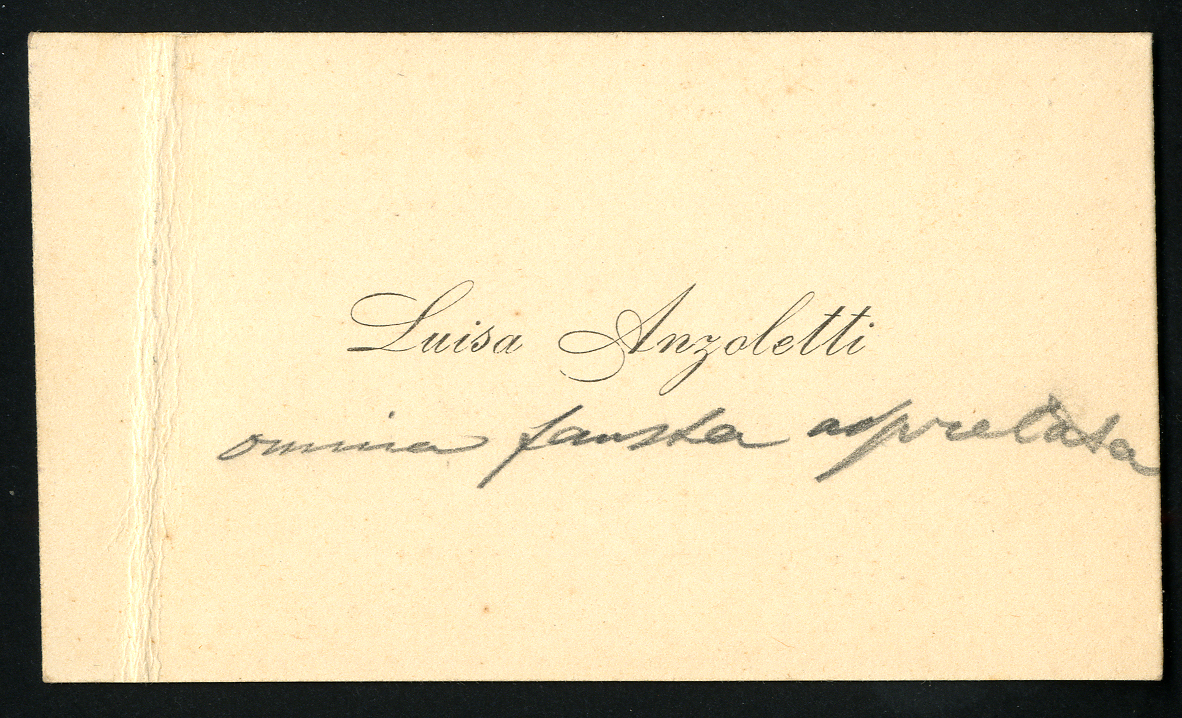 Luisa Anzoletti
omnia fausta adprecata